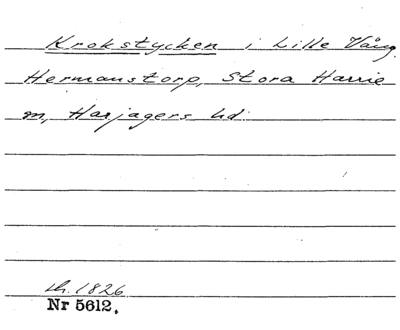 Krokstycken i Lille Vång,
Hermanstorp, Stora Harrie
m, Harjagers hd.
1826
Nr 5612.